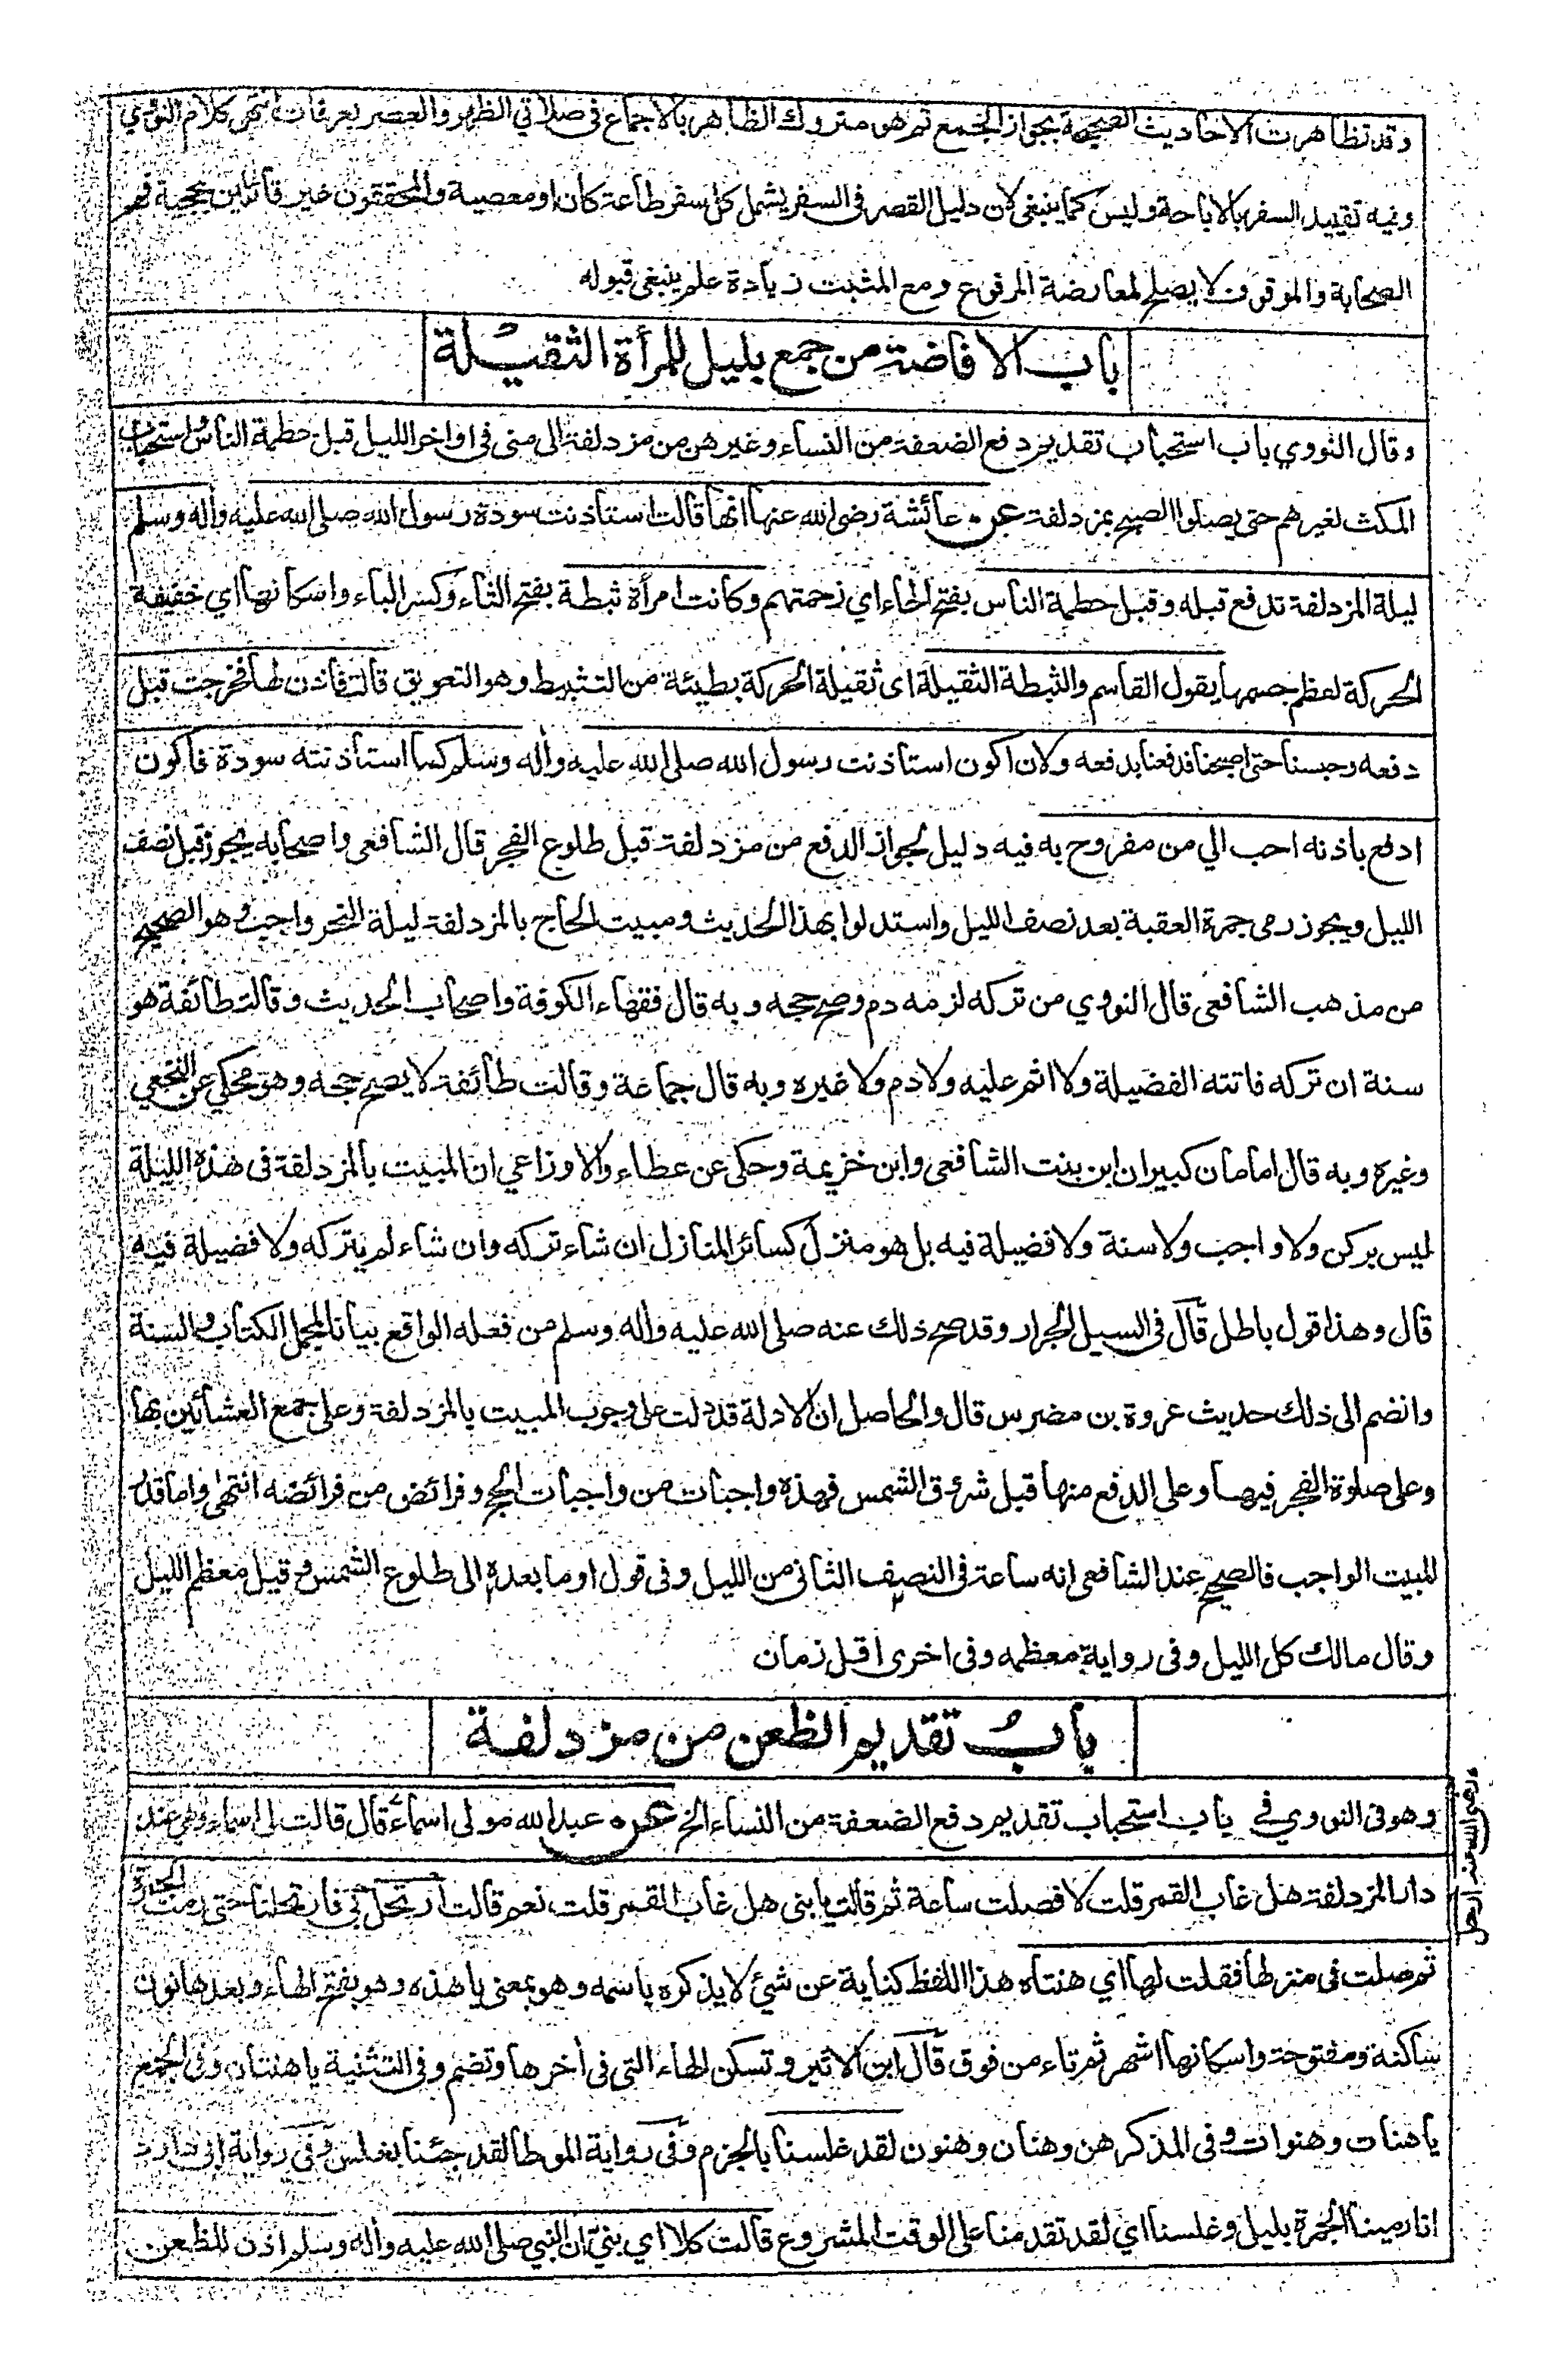 وقد تظاهرت الاحاديث الصحيحة بجواز الجمع ثم هو متروك الظاهر بالاجماع فى صلاتي الظهر والعصر بعرفات انتهى كلام النووي
وفيه تقييد السفر بالاباحة وليس كما ينبغي لان دليل القصر فى السفر يشمل كل سفر طاعة كان او معصية والمحققون غير قائلين بحجية فهم
الصحابة والموقوف لا يصلح لمعارضة المرفوع ومع المثبت زيادة علم ينبغى قبوله
باب الافاضة من جمع بليل للمرأة الثقيلة
وقال النووي باب استحباب تقديم دفع الضعفة من النساء وغيرهن من مزدلفة الى منى فى اواخر الليل قبل حطمة الناس واستحباب
المكث لغيرهم حتى يصلوا الصبح بمزدلفة عن عائشة رضى الله عنها انها قالت استاذنت سودة رسول الله صلى الله عليه واله وسلم
ليلة المزدلفة تدفع قبله وقبل حطمة الناس بفتح الحاء اي زحمتهم وكانت امرأة ثبطة بفتح الثاء وكسر الباء واسكانها اي خفيفة
الحركة لعظم جسمها يقول القاسم والثبطة الثقيلة اى ثقيلة الحركة بطيئة من التثبيط وهو التعويق قالت فاذن لها فخرجت قبل
دفعه وحبسنا حتى اصبحنا فدفعنا بدفعه ولان اكون استاذنت رسول الله صلى الله عليه واله وسلم كما استأذنته سودة فاكون
ادفع باذنه احب الي من مفروح به فيه دليل لجواز الدفع من مزدلفة قبل طلوع الفجر قال الشافعى واصحابه يجوز قبل نصف
الليل ويجوز رمى جمرة العقبة بعد نصف الليل واستدلوا بهذا الحديث ومبيت الحاج بالمزدلفة ليلة النحر واجب وهو الصحيح
من مذهب الشافعى قال النووي من تركه لزمه دم وصح حجه وبه قال فقهاء الكوفة واصحاب الحديث وقالت طائفة هو
سنة ان تركه فاتته الفضيلة ولا اثم عليه ولا دم ولا غيره وبه قال جماعة وقالت طائفة لا يصح حجه وهو محكي عن النخعي
وغيره وبه قال امامان كبيران ابن بنت الشافعى وابن خزيمة وحكى عن عطاء والاوزاعي ان المبيت بالمزدلفة فى هذه الليلة
ليس بركن ولا واجب ولا سنة ولا فضيلة فيه بل هو منزل كسائر المنازل ان شاء تركه وان شاء لم يتركه ولا فضيلة فيه
قال وهذا قول باطل قال فى السيل الجرار وقد صح ذلك عنه صلى الله عليه واله وسلم من فعله الواقع بيانا لمجمل الكتاب والسنة
وانضم الى ذلك حديث عروة بن مضرس قال والحاصل ان الادلة قد دلت على وجوب المبيت بالمزدلفة وعلى جمع العشائين بها
وعلى صلوة الفجر فيها وعلى الدفع منها قبل شروق الشمس فهذه واجبات من واجبات الحج وفرائض من فرائضه انتهى واما قدر
المبيت الواجب فالصحيح عند الشافعى انه ساعة فى النصف الثانى من الليل وفى قول او ما بعده الى طلوع الشمس وقيل معظم الليل
وقال مالك كل الليل وفى رواية معظمه وفى اخرى اقل زمان
باب تقديم الظعن من مزدلفة
وهو فى النووي في باب استحباب تقديم دفع الضعفة من النساء الخ عن عبد الله مولى اسماء قال قالت لى اسماء وهى عند
دار المزدلفة هل غاب القمر قلت لا فصلت ساعة ثم قالت يا بنى هل غاب القمر قلت نعم قالت ارتحل بي فارتحلنا حتى رمت الجمرة
ثم صلت فى منزلها فقلت لها اي هنتاه هذا اللفظ كناية عن شيئ لا يذكره باسمه وهو بمعنى يا هذه وهو بفتح الهاء وبعدها نون
ساكنة ومفتوحة واسكانها اشهر ثم تاء من فوق قال ابن الاثير وتسكن الهاء التى فى اخرها وتضم وفى التثنية يا هنتان وفى الجمع
يا هنات وهنوات وفى المذكر هن وهنان وهنون لقد غلسنا بالجزم وفى رواية الموطا لقد جئنا بغلس وفى رواية ابى داود
انا رمينا الجمرة بليل وغلسنا اي لقد تقدمنا على الوقت المشروع قالت كلا اي بنيّ ان النبي صلى الله عليه واله وسلم اذن للظعن